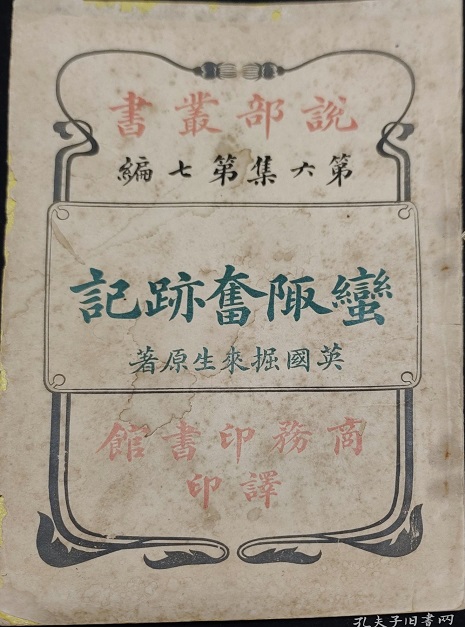 說部叢書
第六集第七編
蠻陬奮跡記
英國掘來生原著
商務印書館
譯印
孔夫子旧書网